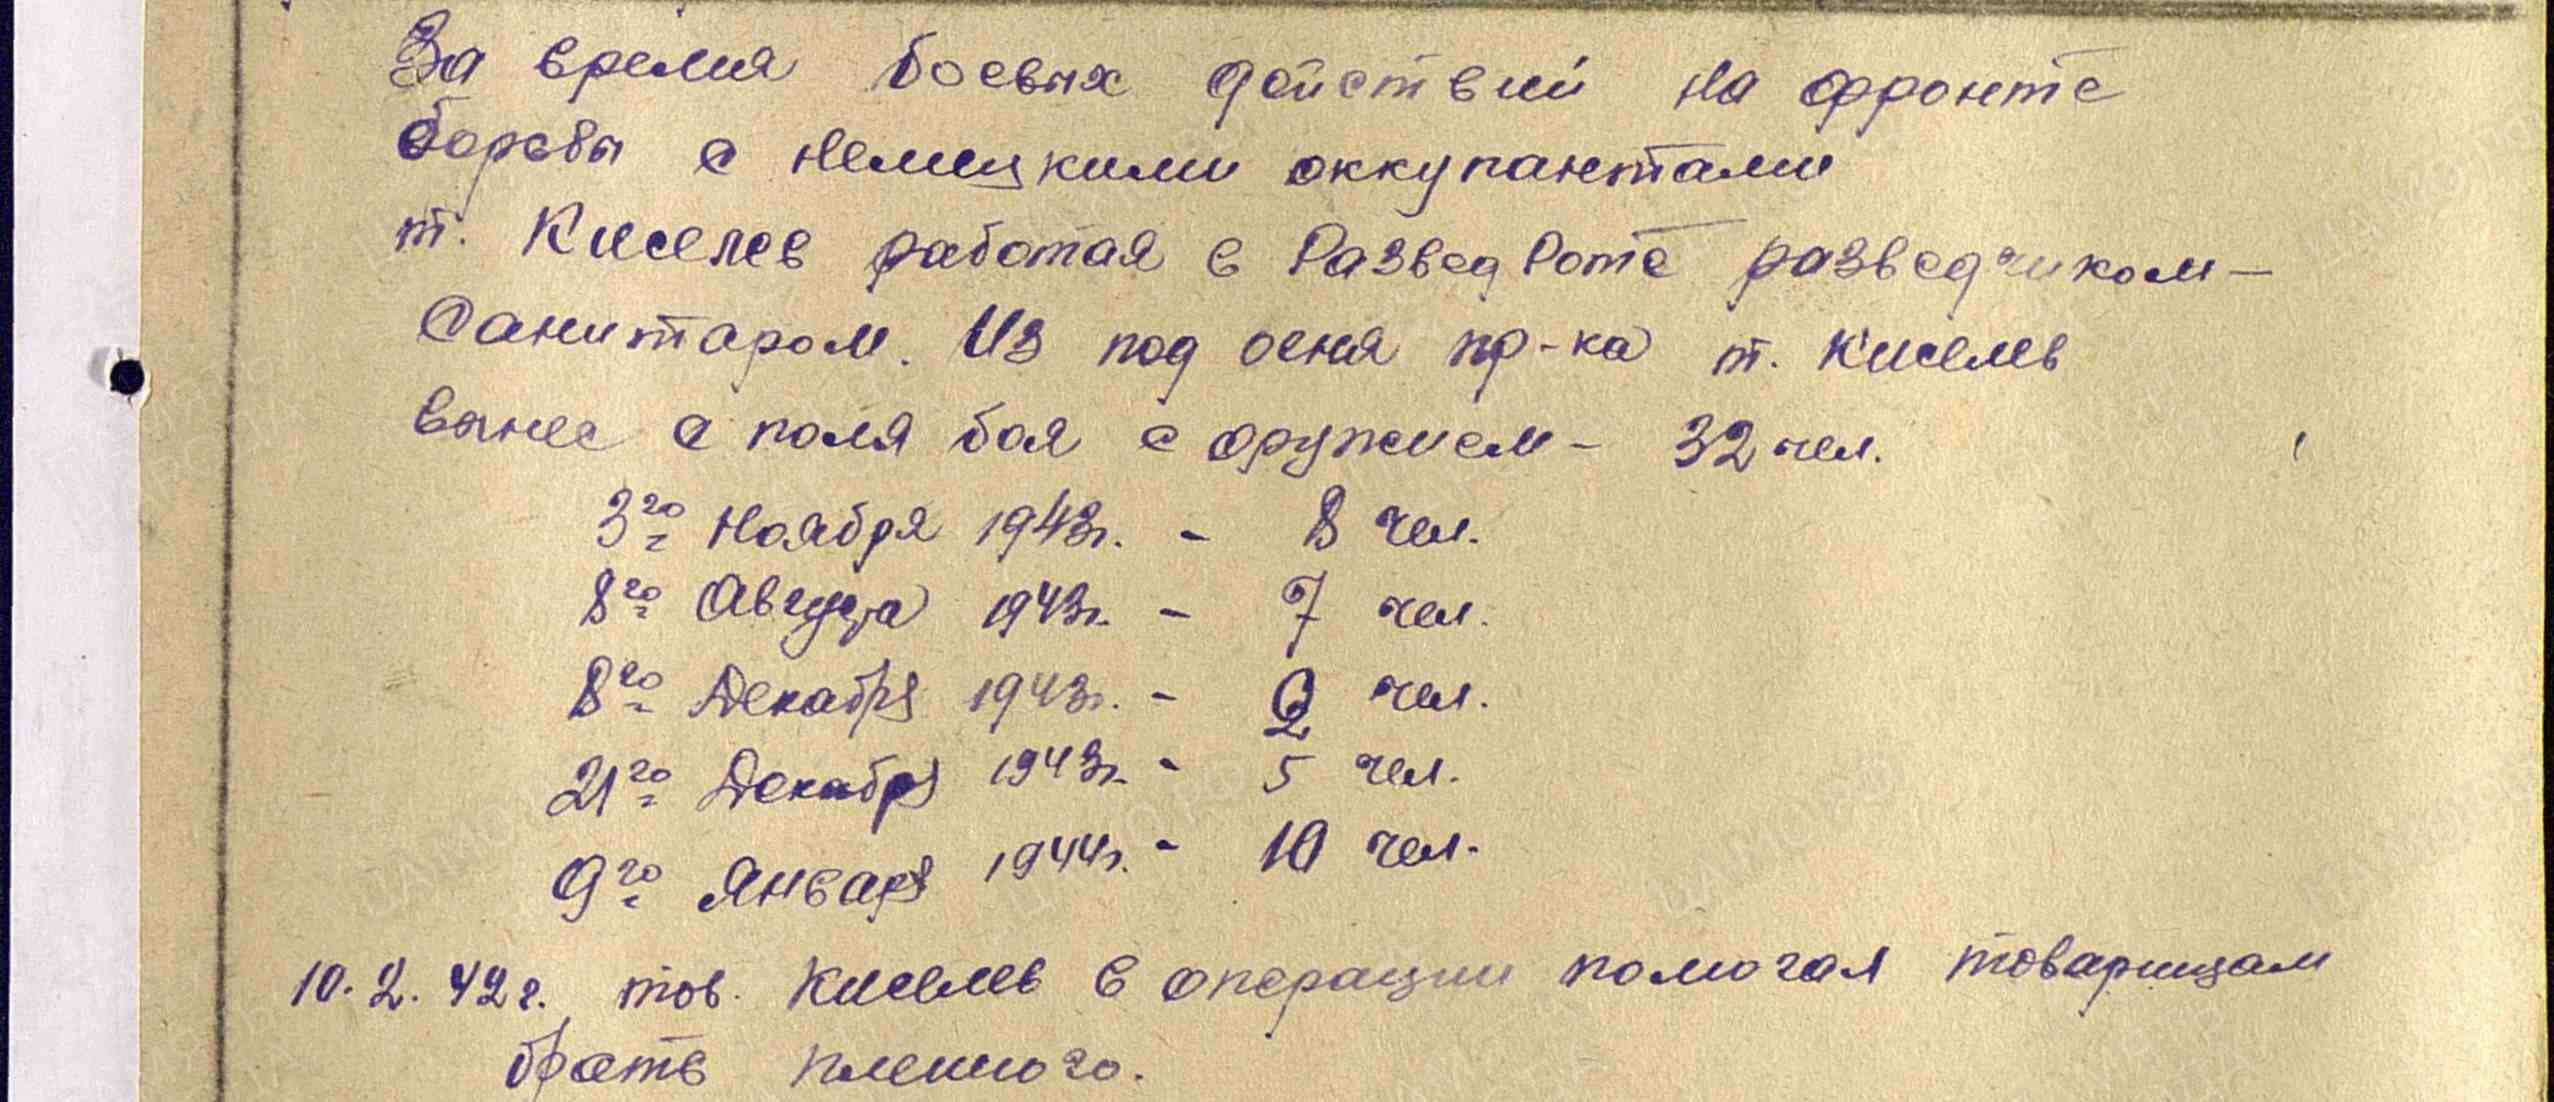 За время боевых действий на фронте
борьбы с немецкими оккупантами
т. Киселев работая в РазведРоте разведчиком-
Санитаром. Из под огня пр-ка т. Киселев
вынес с поля боя с оружием - 32 чел.
3го Ноября 1943г. - 8 чел.
8го Августа 1943г. - 7 чел.
8го Декабря 1943г. - 2 чел.
21го Декабря 1943г. - 5 чел.
9го Января 1944г. - 10 чел.
10.2.42г. тов. Киселев в операции помогал товарищам
брать пленного.